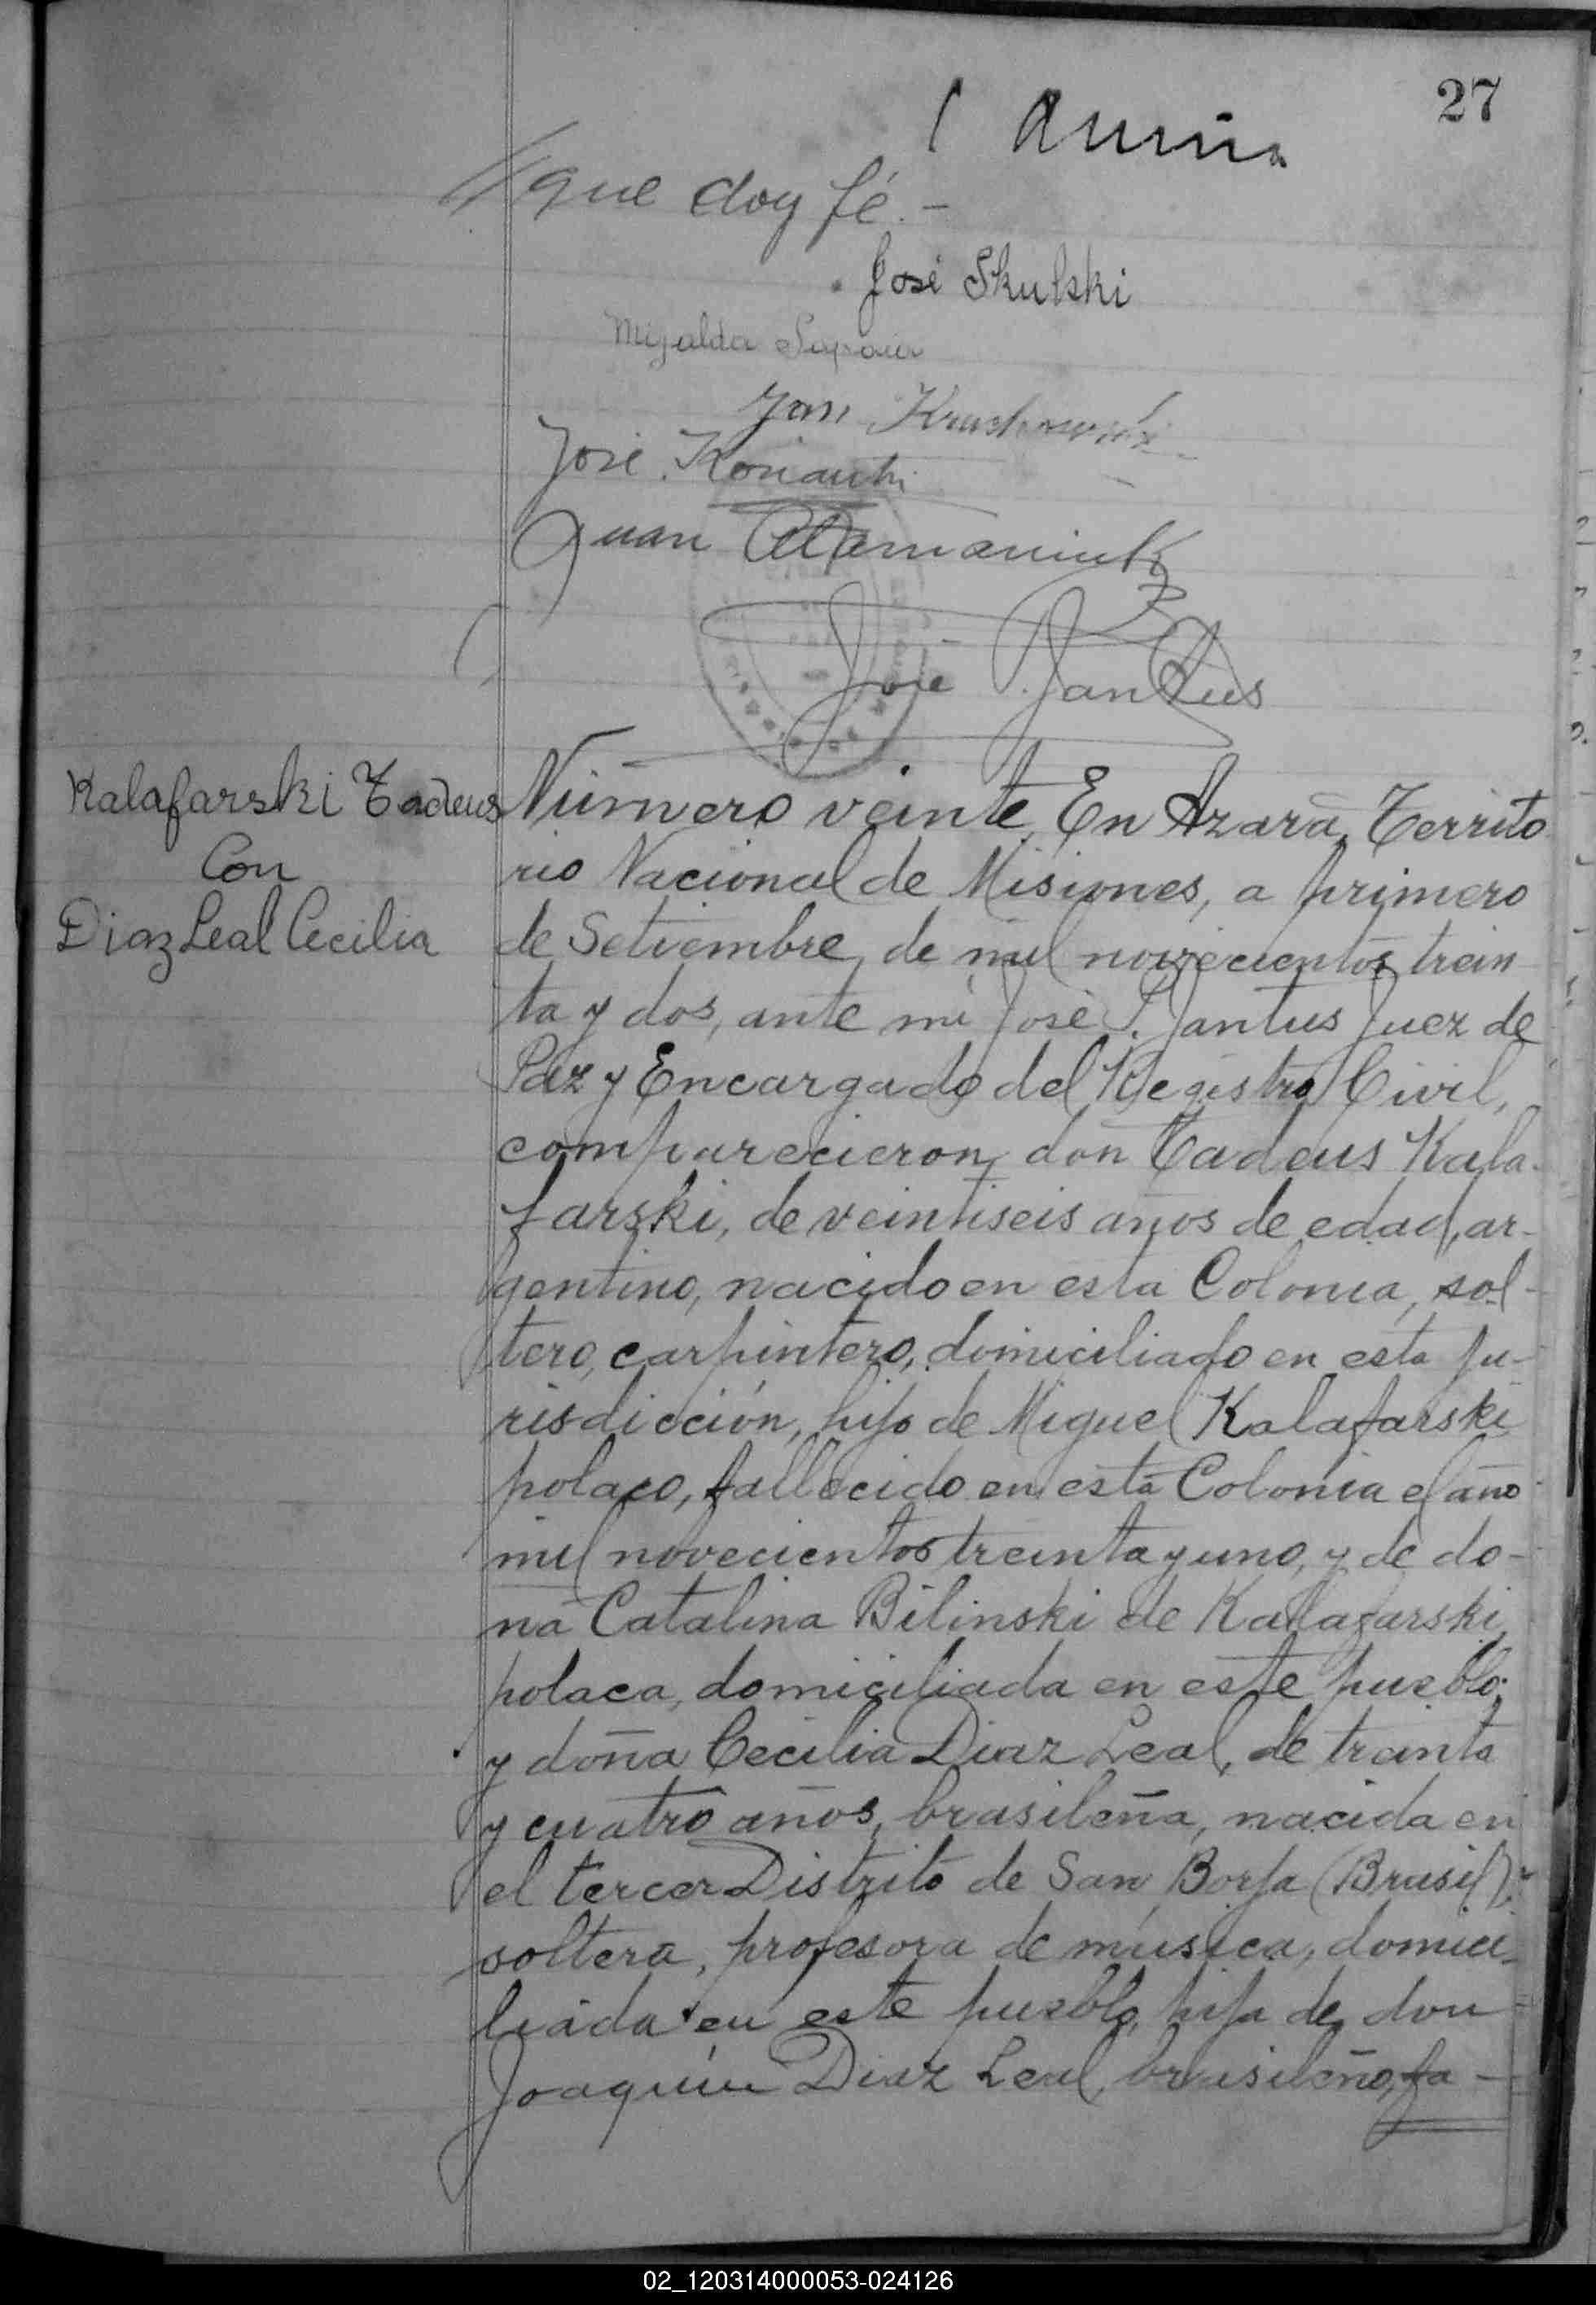 27
que doy fé.-
José Skulski
Migalda
Jan
José
Juan
José P. Jantus
Kalafarski Tadeus
Con
Diaz Leal Cecilia
Número veinte, En Azara, Territo
rio Nacional de Misiones, a primero
de Setiembre, de mil novecientos trein
ta y dos, ante mi José P. Jantus Juez de
Paz y Encargado del Registro Civil,
comparecieron, don Tadeus Kala-
farski, de veintiseis años de edad, ar-
gentino, nacido en esta Colonia, sol-
tero, carpintero, domiciliado en esta ju-
risdicción, hijo de Miguel Kalafarski
polaco, fallecido en esta Colonia el año
mil novecientos treinta y uno, y de do-
ña Catalina Bilinski de Kalafarski,
polaca, domiciliada en este pueblo;
y doña Cecilia Diaz Leal, de treinta
y cuatro años, brasileña, nacida en
el tercer Distrito de San Borja (Brasil),
soltera, profesora de música, domici-
liada en este pueblo, hija de don
Joaquin Diaz Leal, brasileño, fa-
02_120314000053-024126